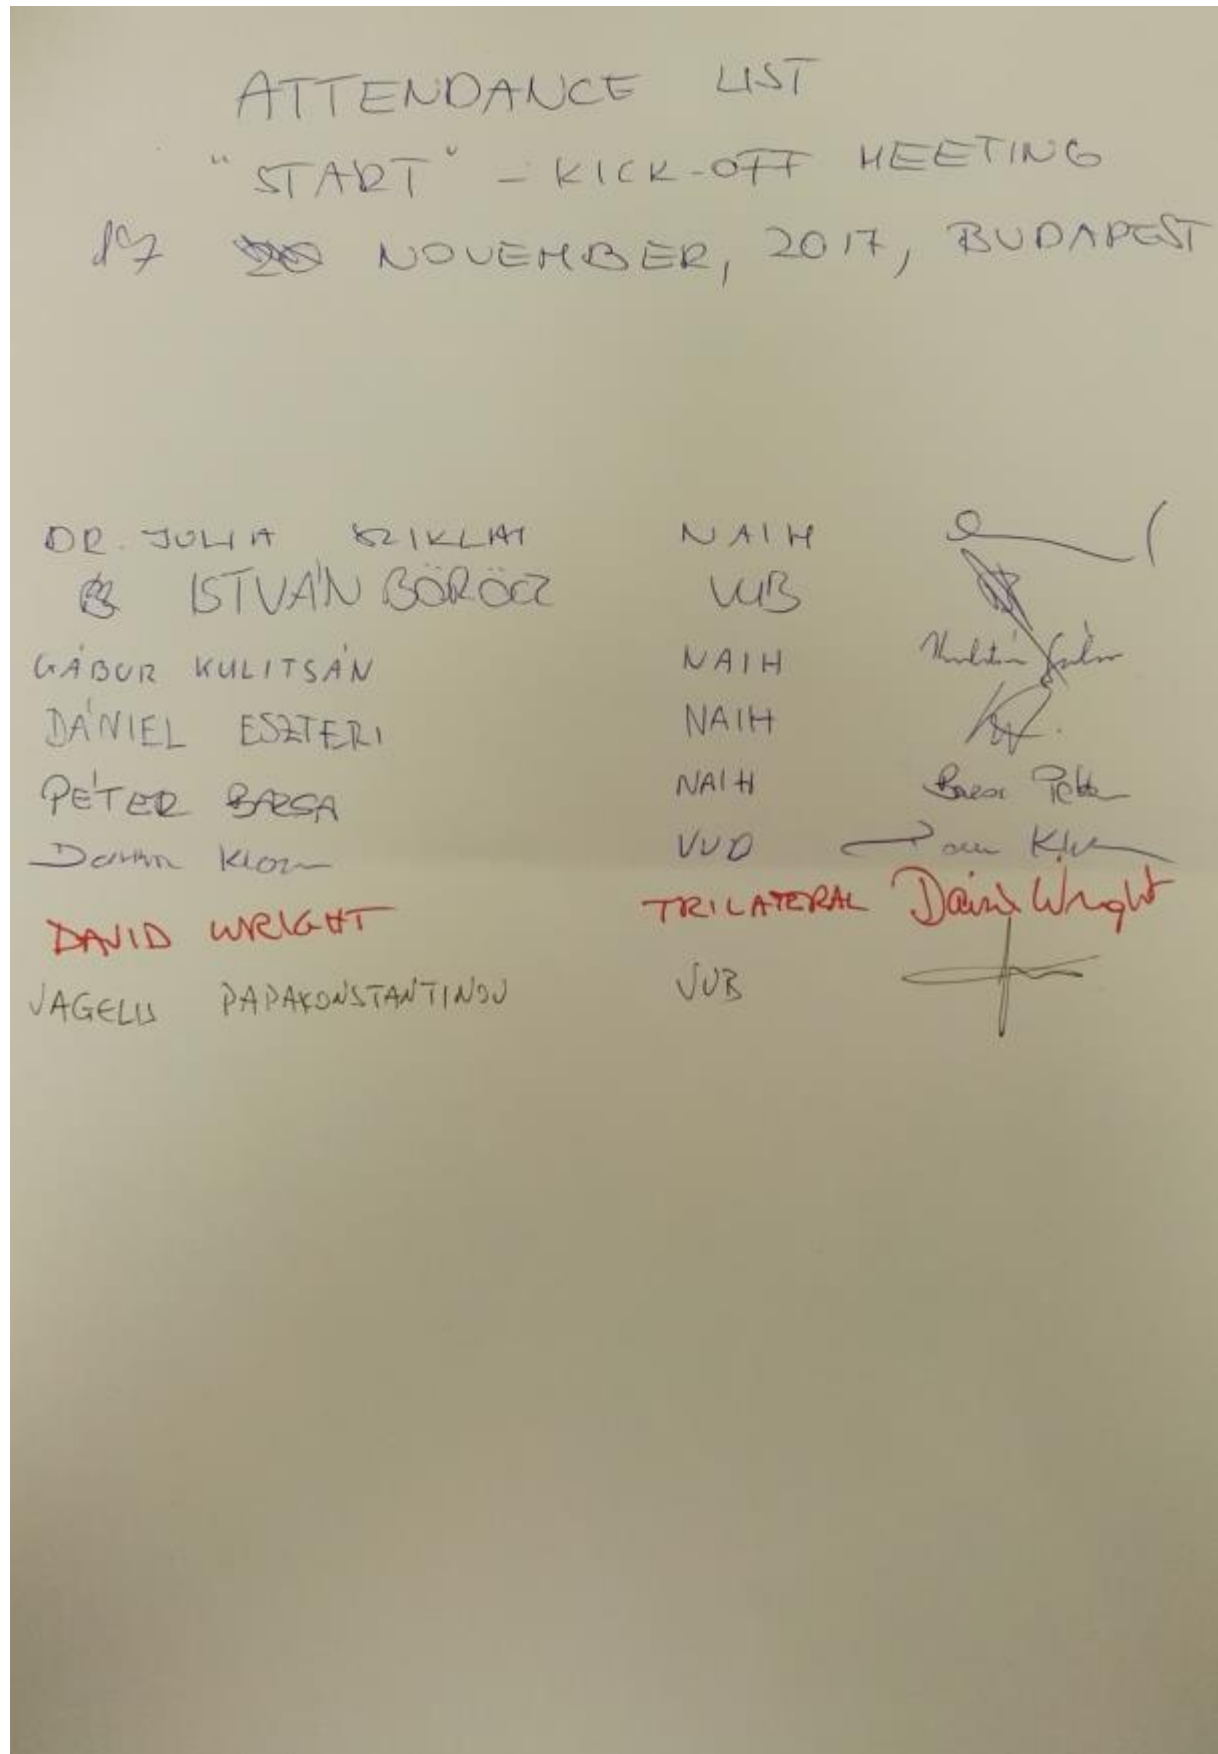 ATTENDANCE LIST
"START" - KICK-OFF MEETING
17 NOVEMBER, 2017, BUDAPEST
DR. JULIA SZIKLAI NAIH
ISTVÁN BÖRÖCZ VUB
GÁBOR KULITSÁN NAIH
DÁNIEL ESZTERI NAIH
PÉTER BARSA NAIH Barsa Péter
VUB
DAVID WRIGHT TRILATERAL David Wright
VAGELIS PAPAKONSTANTINOU VUB